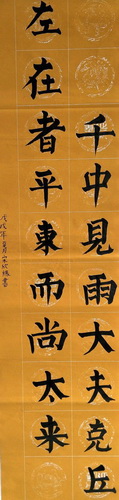 千中見雨大夫克丘
左在者平東而尚太来
戊戌年